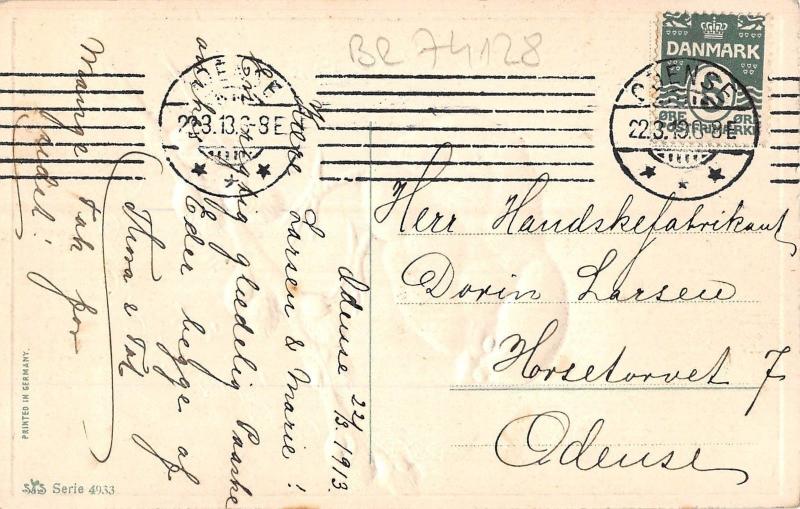 BR 74128
DANMARK
5
ØRE ØRE
POSTFRIMÆRKE
ODENSE
22.3.13.6-8 E
22.3.13.6-8 E
Herr Handskefabrikant
Dorin Larsen
Horsetorvet 7
Odense
Odense 22/3. 1913.
Kære Larsen & Marie!
En rigtig glædelig Paaske
ønskes Eder begge af
Thora &
Mange Tak for
PRINTED IN GERMANY.
Serie 4933